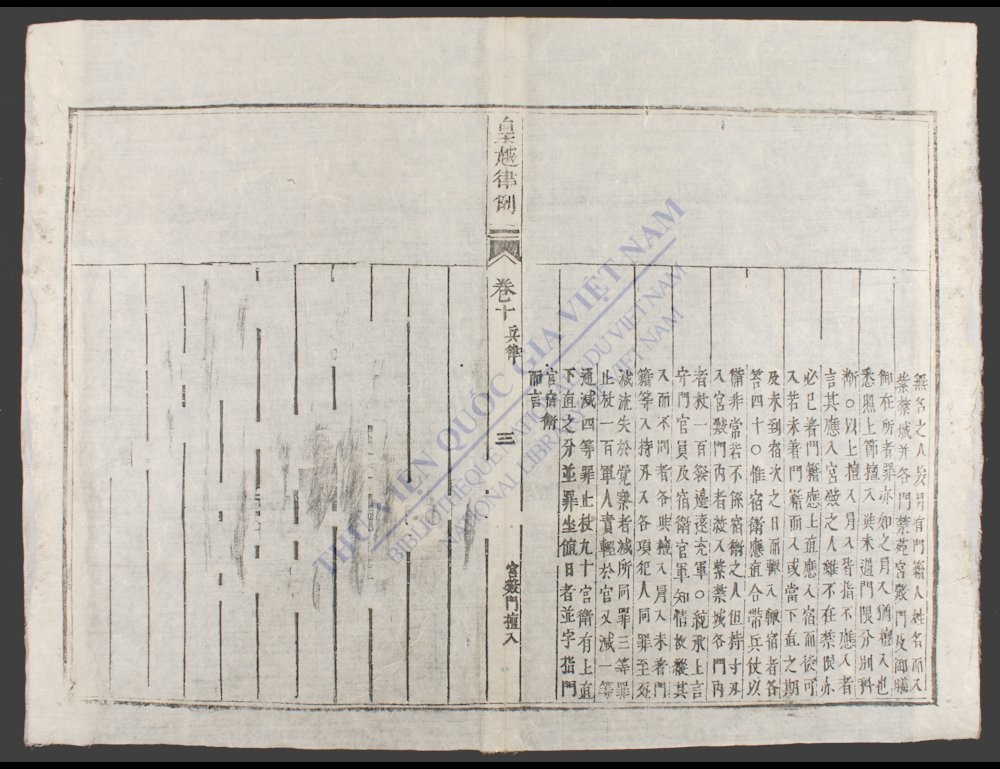 無名之人冒有門籍人姓名而入
紫禁城并各門禁苑宮殿門及御膳
御在所者罪亦如之冒入猶擅入也
悉照上節擅入與未過門限分別科
斷○以上擅入冒入皆指不應入者
言其應入宮殿之人雖不在禁限亦
必已著門籍應上直應入宿而後可
入若未著門籍而入或當下直之期
及未到宿次之日而輒入輒宿者各
笞四十○惟宿衛應直合帶兵仗以
備非常若不係宿衛之人但持寸刃
入宮殿門內者絞入紫禁城各門內
者杖一百發邊遠充軍○統承上言
守門官員及宿衛官軍知情故縱其
入而不問者各與擅入冒入未著門
籍等入持刃入各項犯人同罪至死
減流失於覺察者減所同罪三等罪
止杖一百軍人責輕於官又減一等
通減四等罪止杖九十宮衛有上直
下直之分並罪坐值日者並字指門
官宿衛
而言
皇越律例
卷十 兵律
三
宮殿門擅入
THƯ VIỆN QUỐC GIA VIỆT NAM
BIBLIOTHÈQUE NATIONALE DU VIET NAM
NATIONAL LIBRARY OF VIET NAM